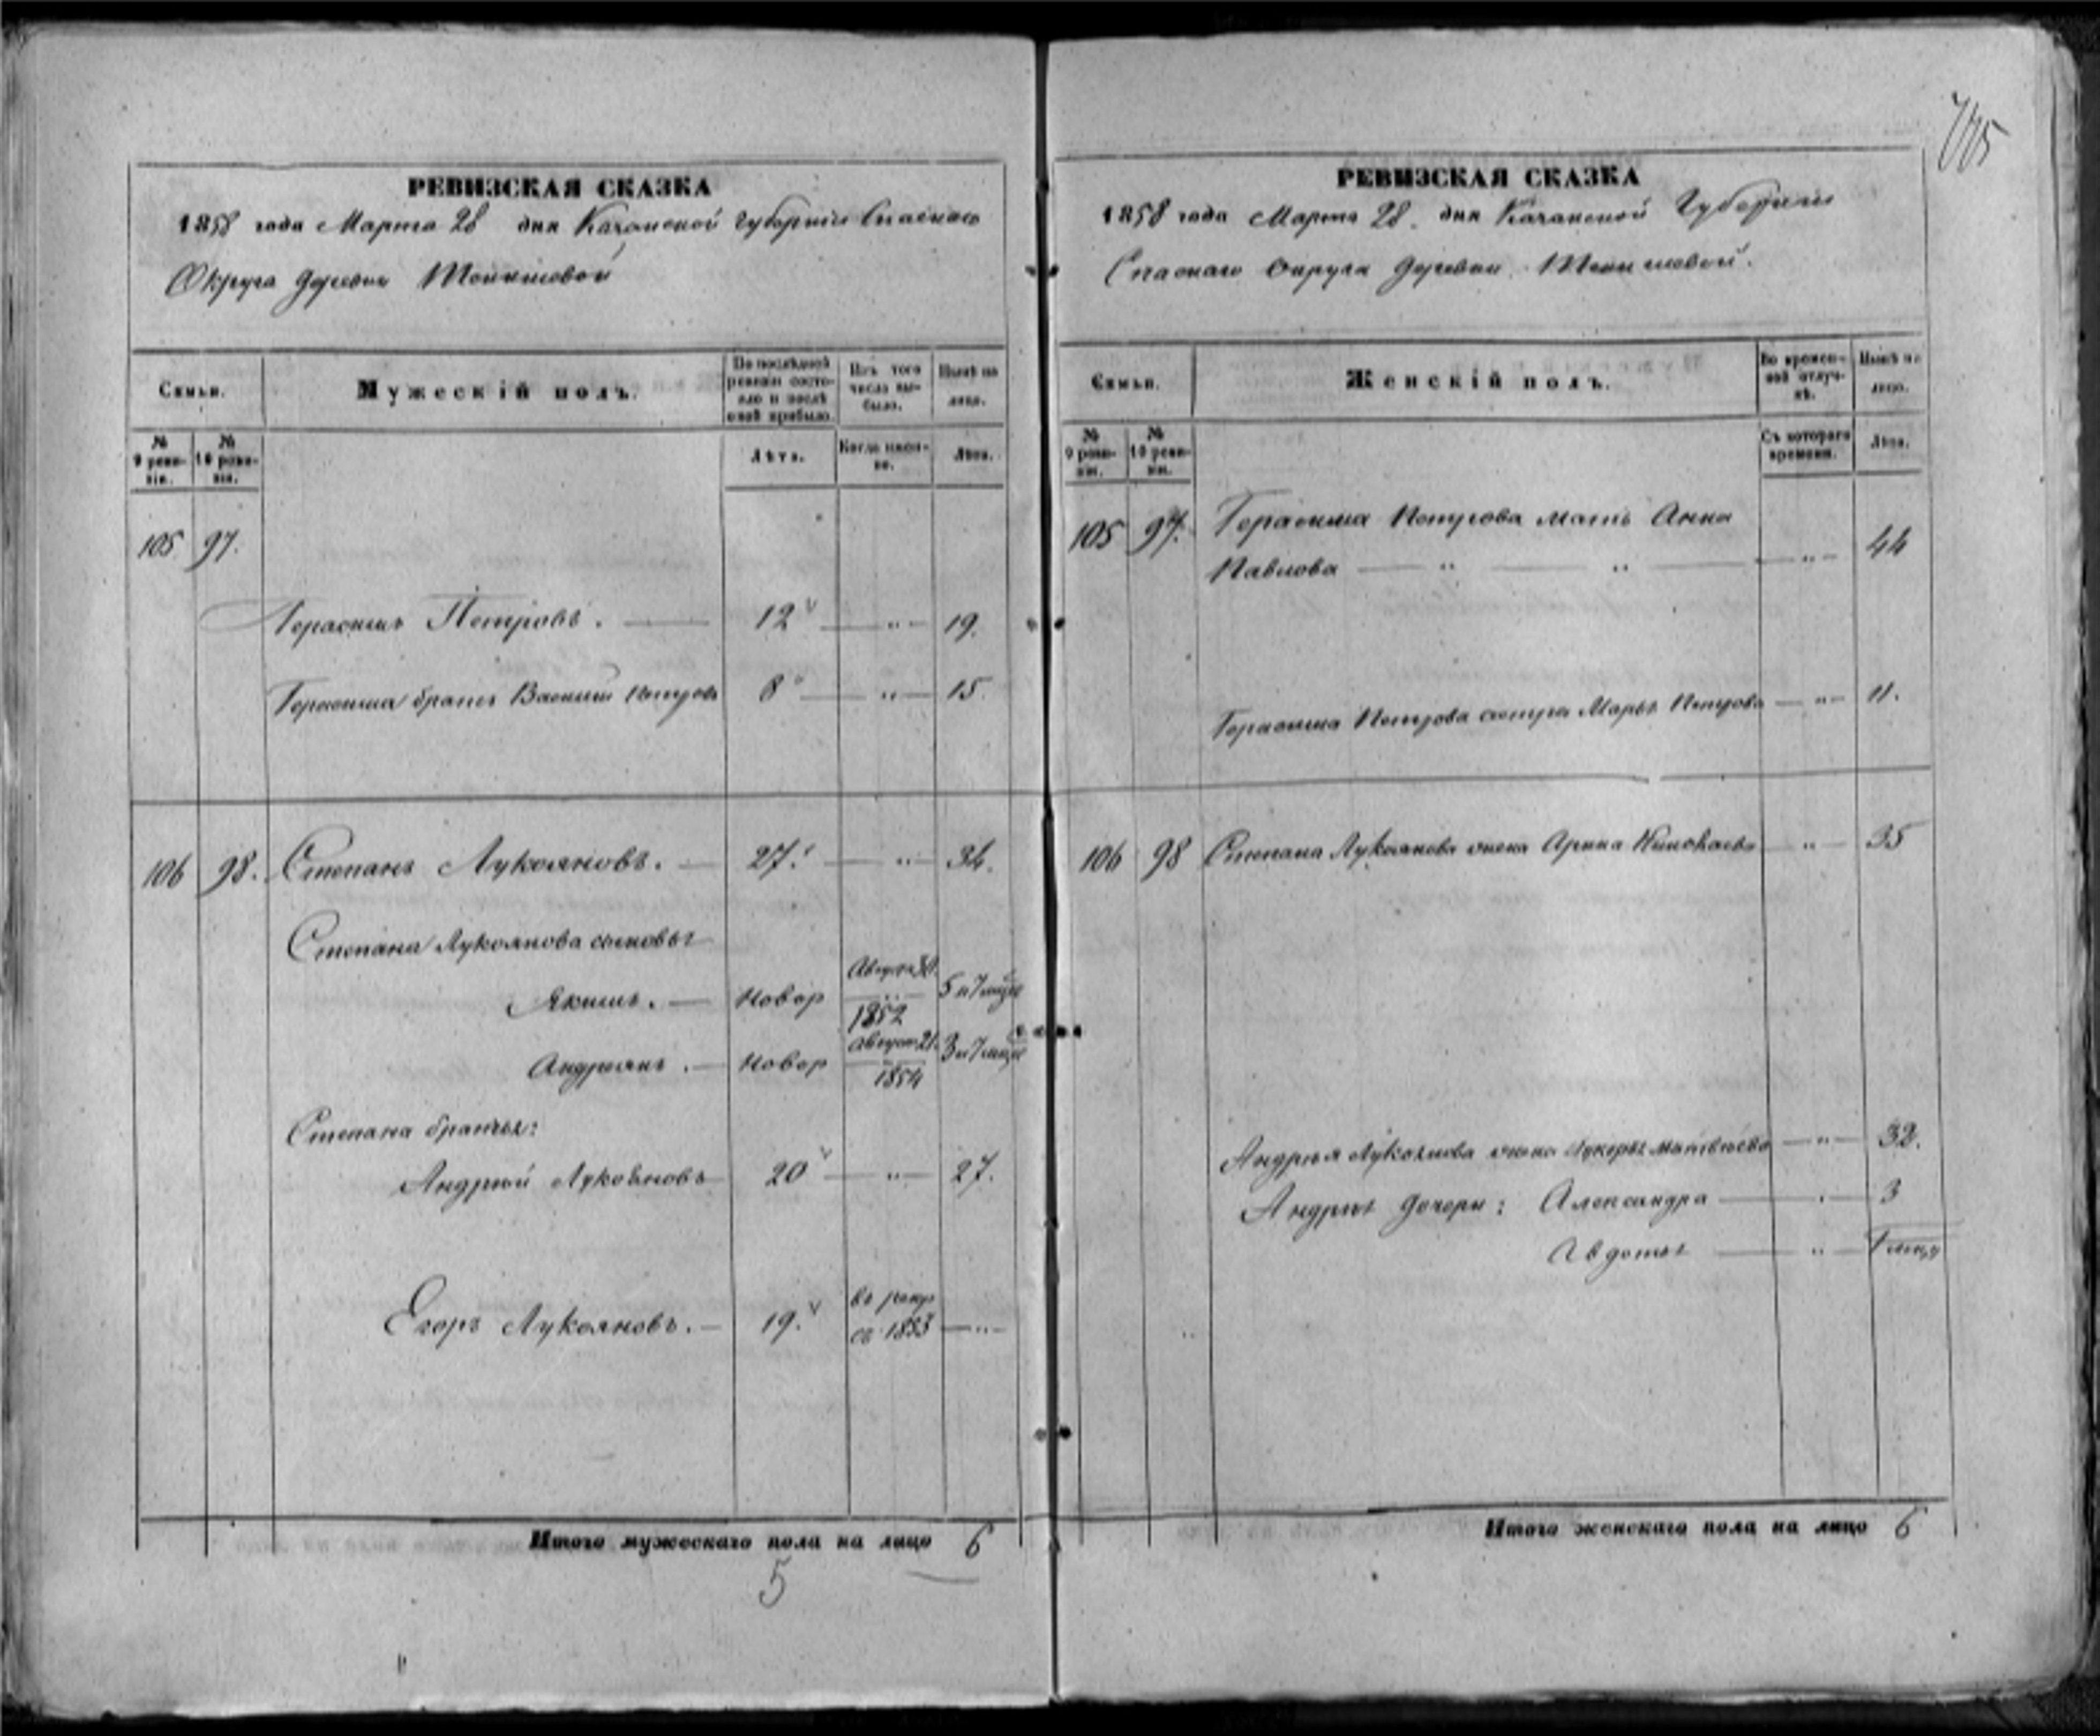 775
РЕВИЗСКАЯ СКАЗКА
1858 года Марта 28 дня Казанской Губернiи Спаскаго
Округа деревни
Семьи.
Мужескiй полъ.
По послѣдней ревизiи состояло и послѣ оной прибыло.
Изъ того числа выбыло.
Нынѣ на лицо.
№ 9 ревизiи.
№ 10 ревизiи.
Лѣта.
Когда именно.
Лѣта.
105 97.
Герасимъ Петровъ. — 12 — „ — 19.
Герасима братъ Василiй Петровъ 8 — „ — 15.
106 98. Степанъ Лукояновъ. — 27. — „ — 34.
Степана Лукоянова сыновья
Якимъ. — Новор Августа 1852 5 и 7 мцы
Андреянъ. — Новор Август 21. 1854 3 и 7 мцы
Степана братья:
Андрей Лукояновъ 20 — „ — 27.
Егоръ Лукояновъ. — 19. въ рекр съ 1853 — „ —
Итого мужескаго пола на лицо 6
5
РЕВИЗСКАЯ СКАЗКА
1858 года Марта 28. дня Казанской Губернiи
Спаскаго Округа деревни
Семьи.
Женскiй полъ.
Во временной отлучкѣ.
Нынѣ на лицо.
№ 9 ревизiи.
№ 10 ревизiи.
Съ котораго времени.
Лѣта.
105 97. Герасима Петрова мать Анна
Павлова — „ — „ — „ — 44
Герасима Петрова сестра Марья Петрова — „ — 11.
106 98 Степана Лукоянова жена Арина Николаева — „ — 35
Андрея Лукоянова жена Лукерья Матвѣева — „ — 32.
Андрея дочери: Александра — „ — 3
Авдотья — „ — мцы
Итого женскаго пола на лицо 6